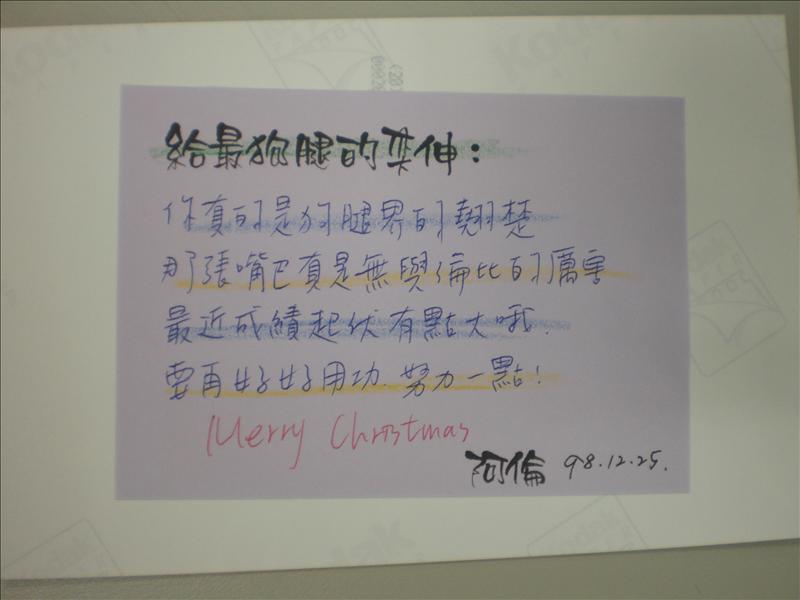 Kodak
給最狗腿的奕伸：
你真的是狗腿界的翹楚
那張嘴巴真是無與倫比的厲害
最近成績起伏有點大哦！
要再好好用功.努力一點！
Merry Christmas
阿倫 98.12.25.
Kodak